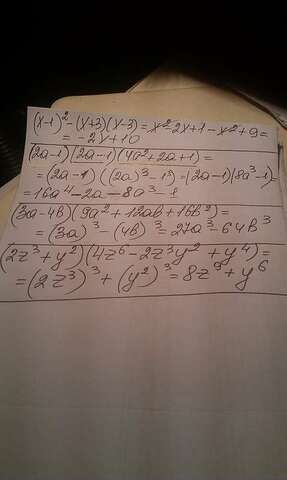 (x-1)² - (x+3)(x-3) = x² - 2x + 1 - x² + 9 =
= -2x + 10
(2a-1)(2a-1)(4a²+2a+1) =
= (2a-1)((2a)³ - 1³) = (2a-1)(8a³-1) =
= 16a⁴ - 2a - 8a³ - 1
(3a-4b)(9a² + 12ab + 16b²) =
= (3a)³ - (4b)³ = 27a³ - 64b³
(2z³ + y²)(4z⁶ - 2z³y² + y⁴) =
= (2z³)³ + (y²)³ = 8z⁹ + y⁶